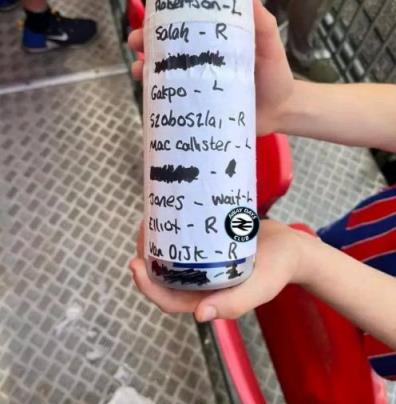 Robertson - L
Salah - R
Gakpo - L
Szoboszlai - R
Mac callister - L
Jones - wait - L
Elliot - R
Van Dijk - R
AWAY DAYZ
CLUB